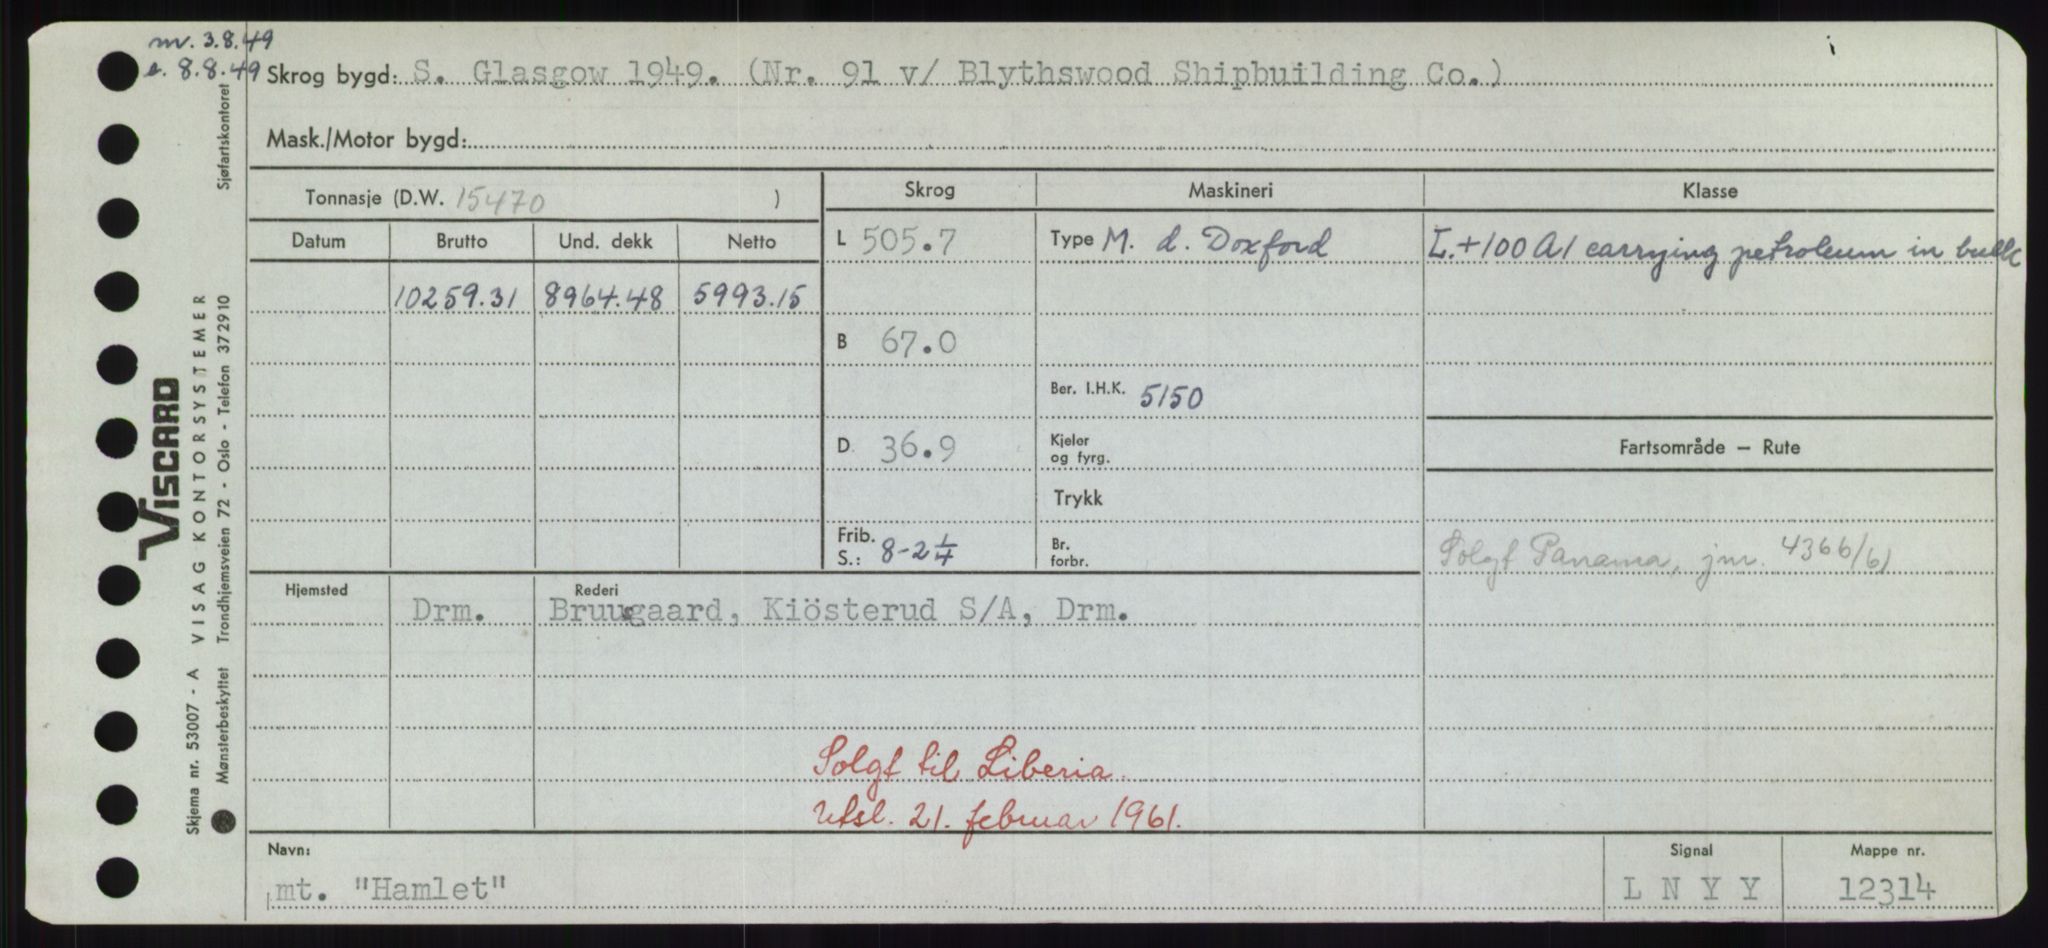 nv. 3.8.49
e. 8.8.49
Skrog bygd: S. Glasgow 1949. (Nr. 91 v/ Blythswood Shipbuilding Co.)
Mask./Motor bygd:
Tonnasje (D.W. 15470 )
Skrog
Maskineri
Klasse
Datum
Brutto
Und. dekk
Netto
L 505.7
Type M. d. Doxford
L.+100 A1 carrying petroleum in bulk
10259.31 8964.48 5993.15
B 67.0
Ber. I.H.K. 5150
D 36.9
Kjeler
og fyrg.
Fartsområde – Rute
Trykk
Frib.
S.: 8-2 1/4
Br.
forbr.
Solgt Panama, jnr. 4366/61
Hjemsted
Rederi
Drm.
Bruusgaard, Kiösterud S/A, Drm.
Solgt til Liberia.
Utsl. 21. februar 1961.
Navn:
mt. "Hamlet"
Signal
L N Y Y
Mappe nr.
12314
VISCARD
Skjema nr. 53007 - A VISAG KONTORSYSTEMER
Mønsterbeskyttet Trondhjemsveien 72 - Oslo - Telefon 372910
Sjøfartskontoret